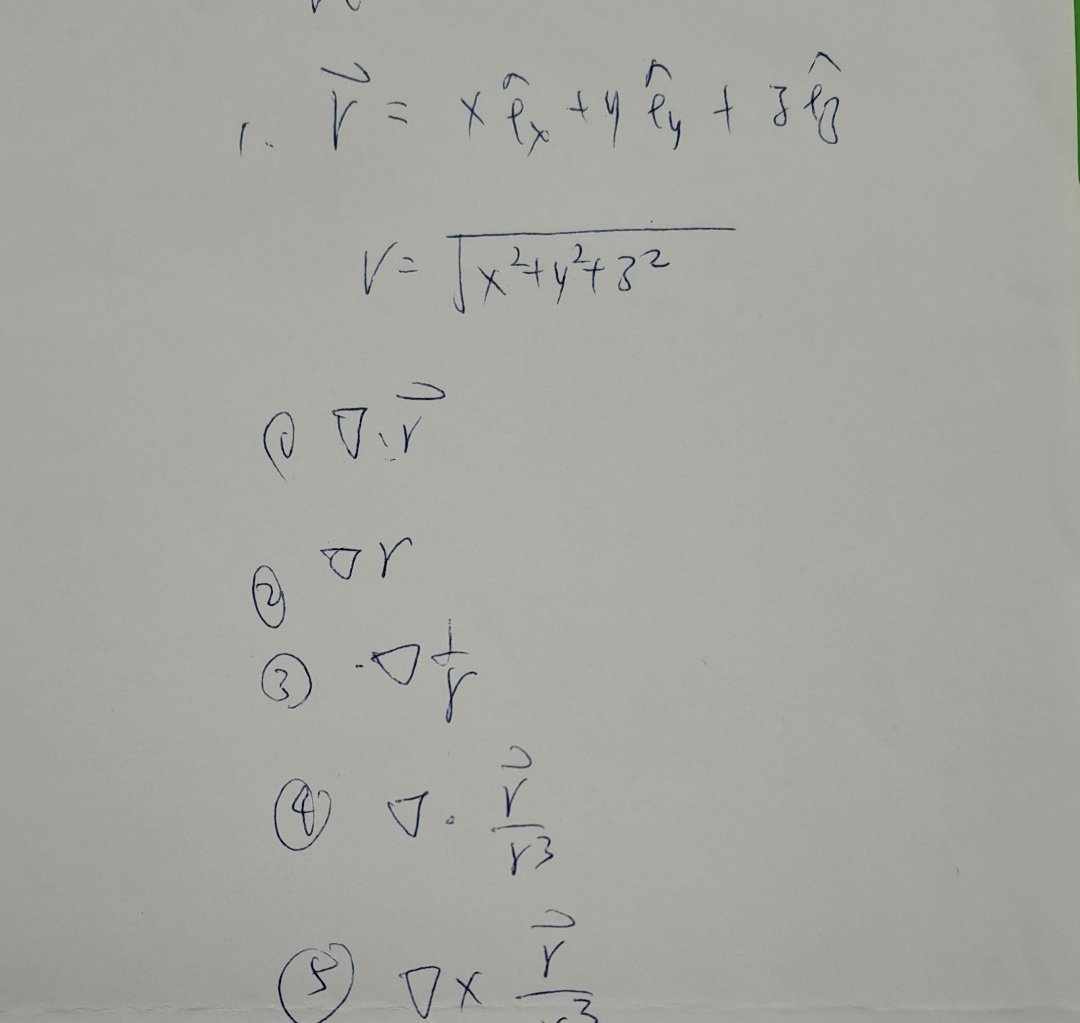 1. r⃗ = x ê_x + y ê_y + z ê_z
r = √(x² + y² + z²)
① ∇·r⃗
② ∇r
③ ∇ 1/r
④ ∇· r⃗/r³
⑤ ∇× r⃗/r³